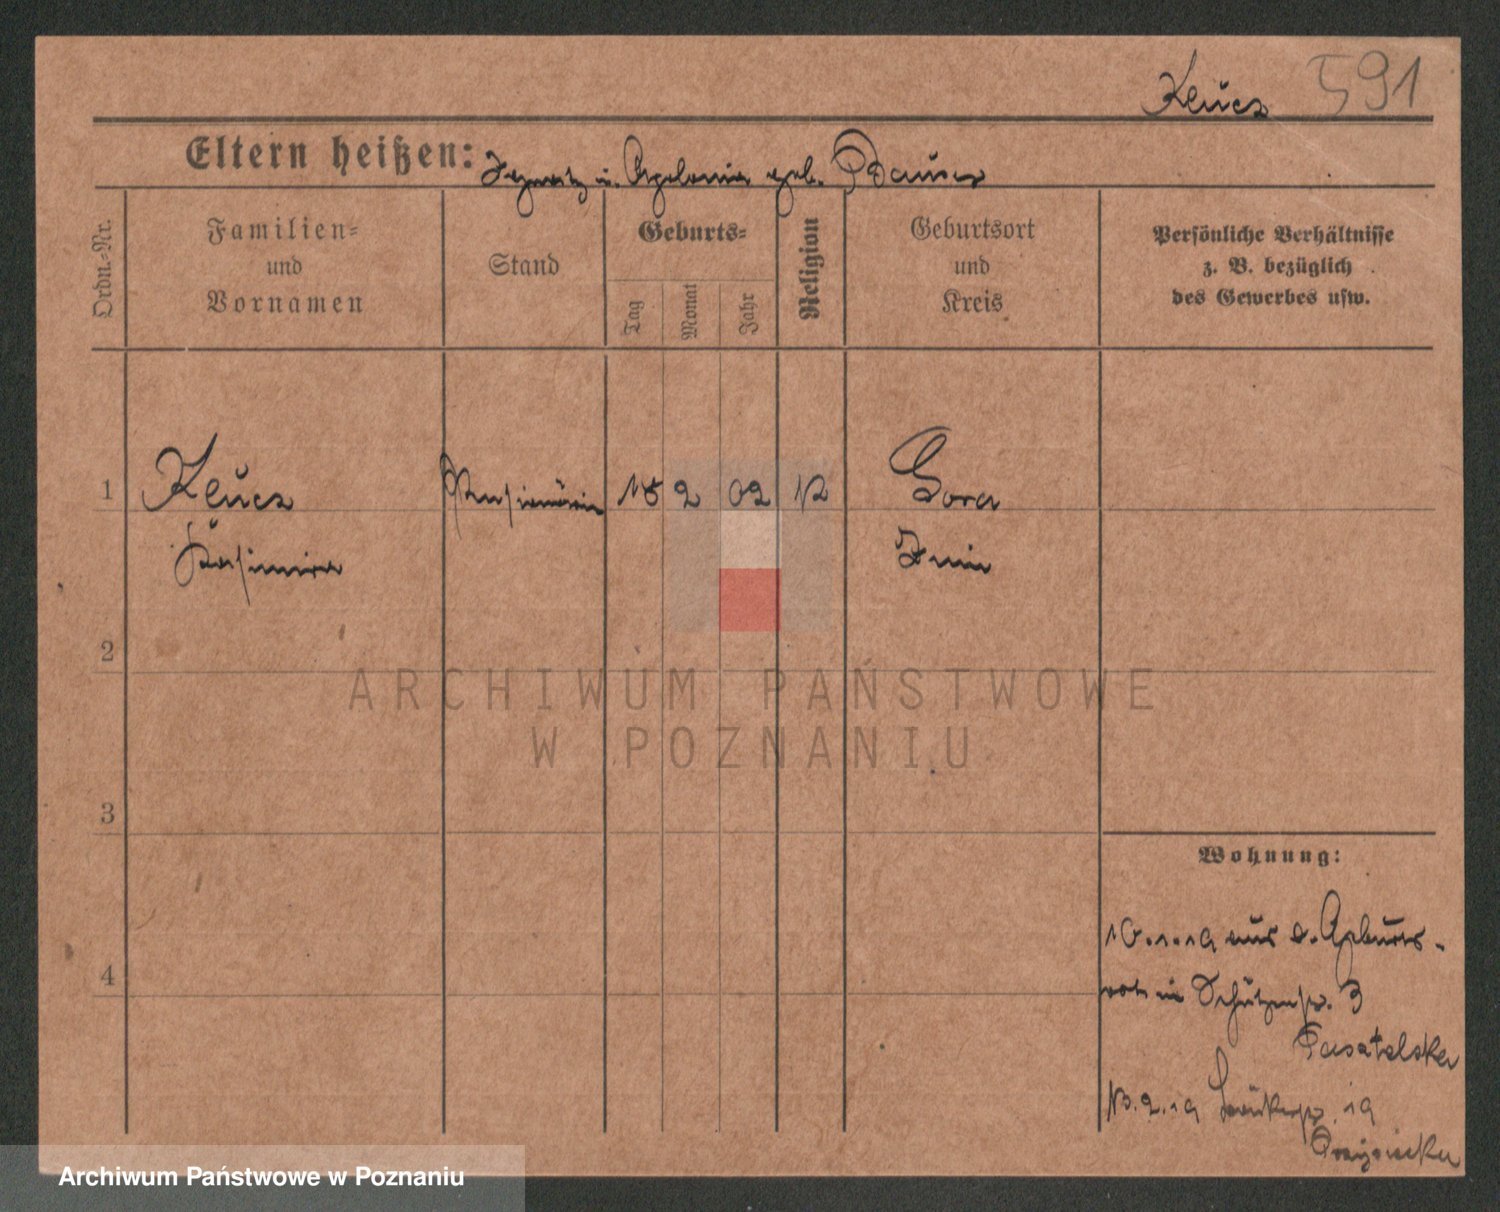 Klucz 591
Eltern heißen: Ignatz u. Apolonia geb.
Ordn.-Nr.
Familien-
und
Vornamen
Stand
Geburts-
Tag
Monat
Jahr
Religion
Geburtsort
und
Kreis
Persönliche Verhältnisse
z. B. bezüglich
des Gewerbes usw.
1 Klucz 2 02 k Gora
Kasimira Znin
2
ARCHIWUM PAŃSTWOWE
W POZNANIU
3
Wohnung:
aus d. Geburts-
ort in Schützenstr. 3
4
19
Archiwum Państwowe w Poznaniu